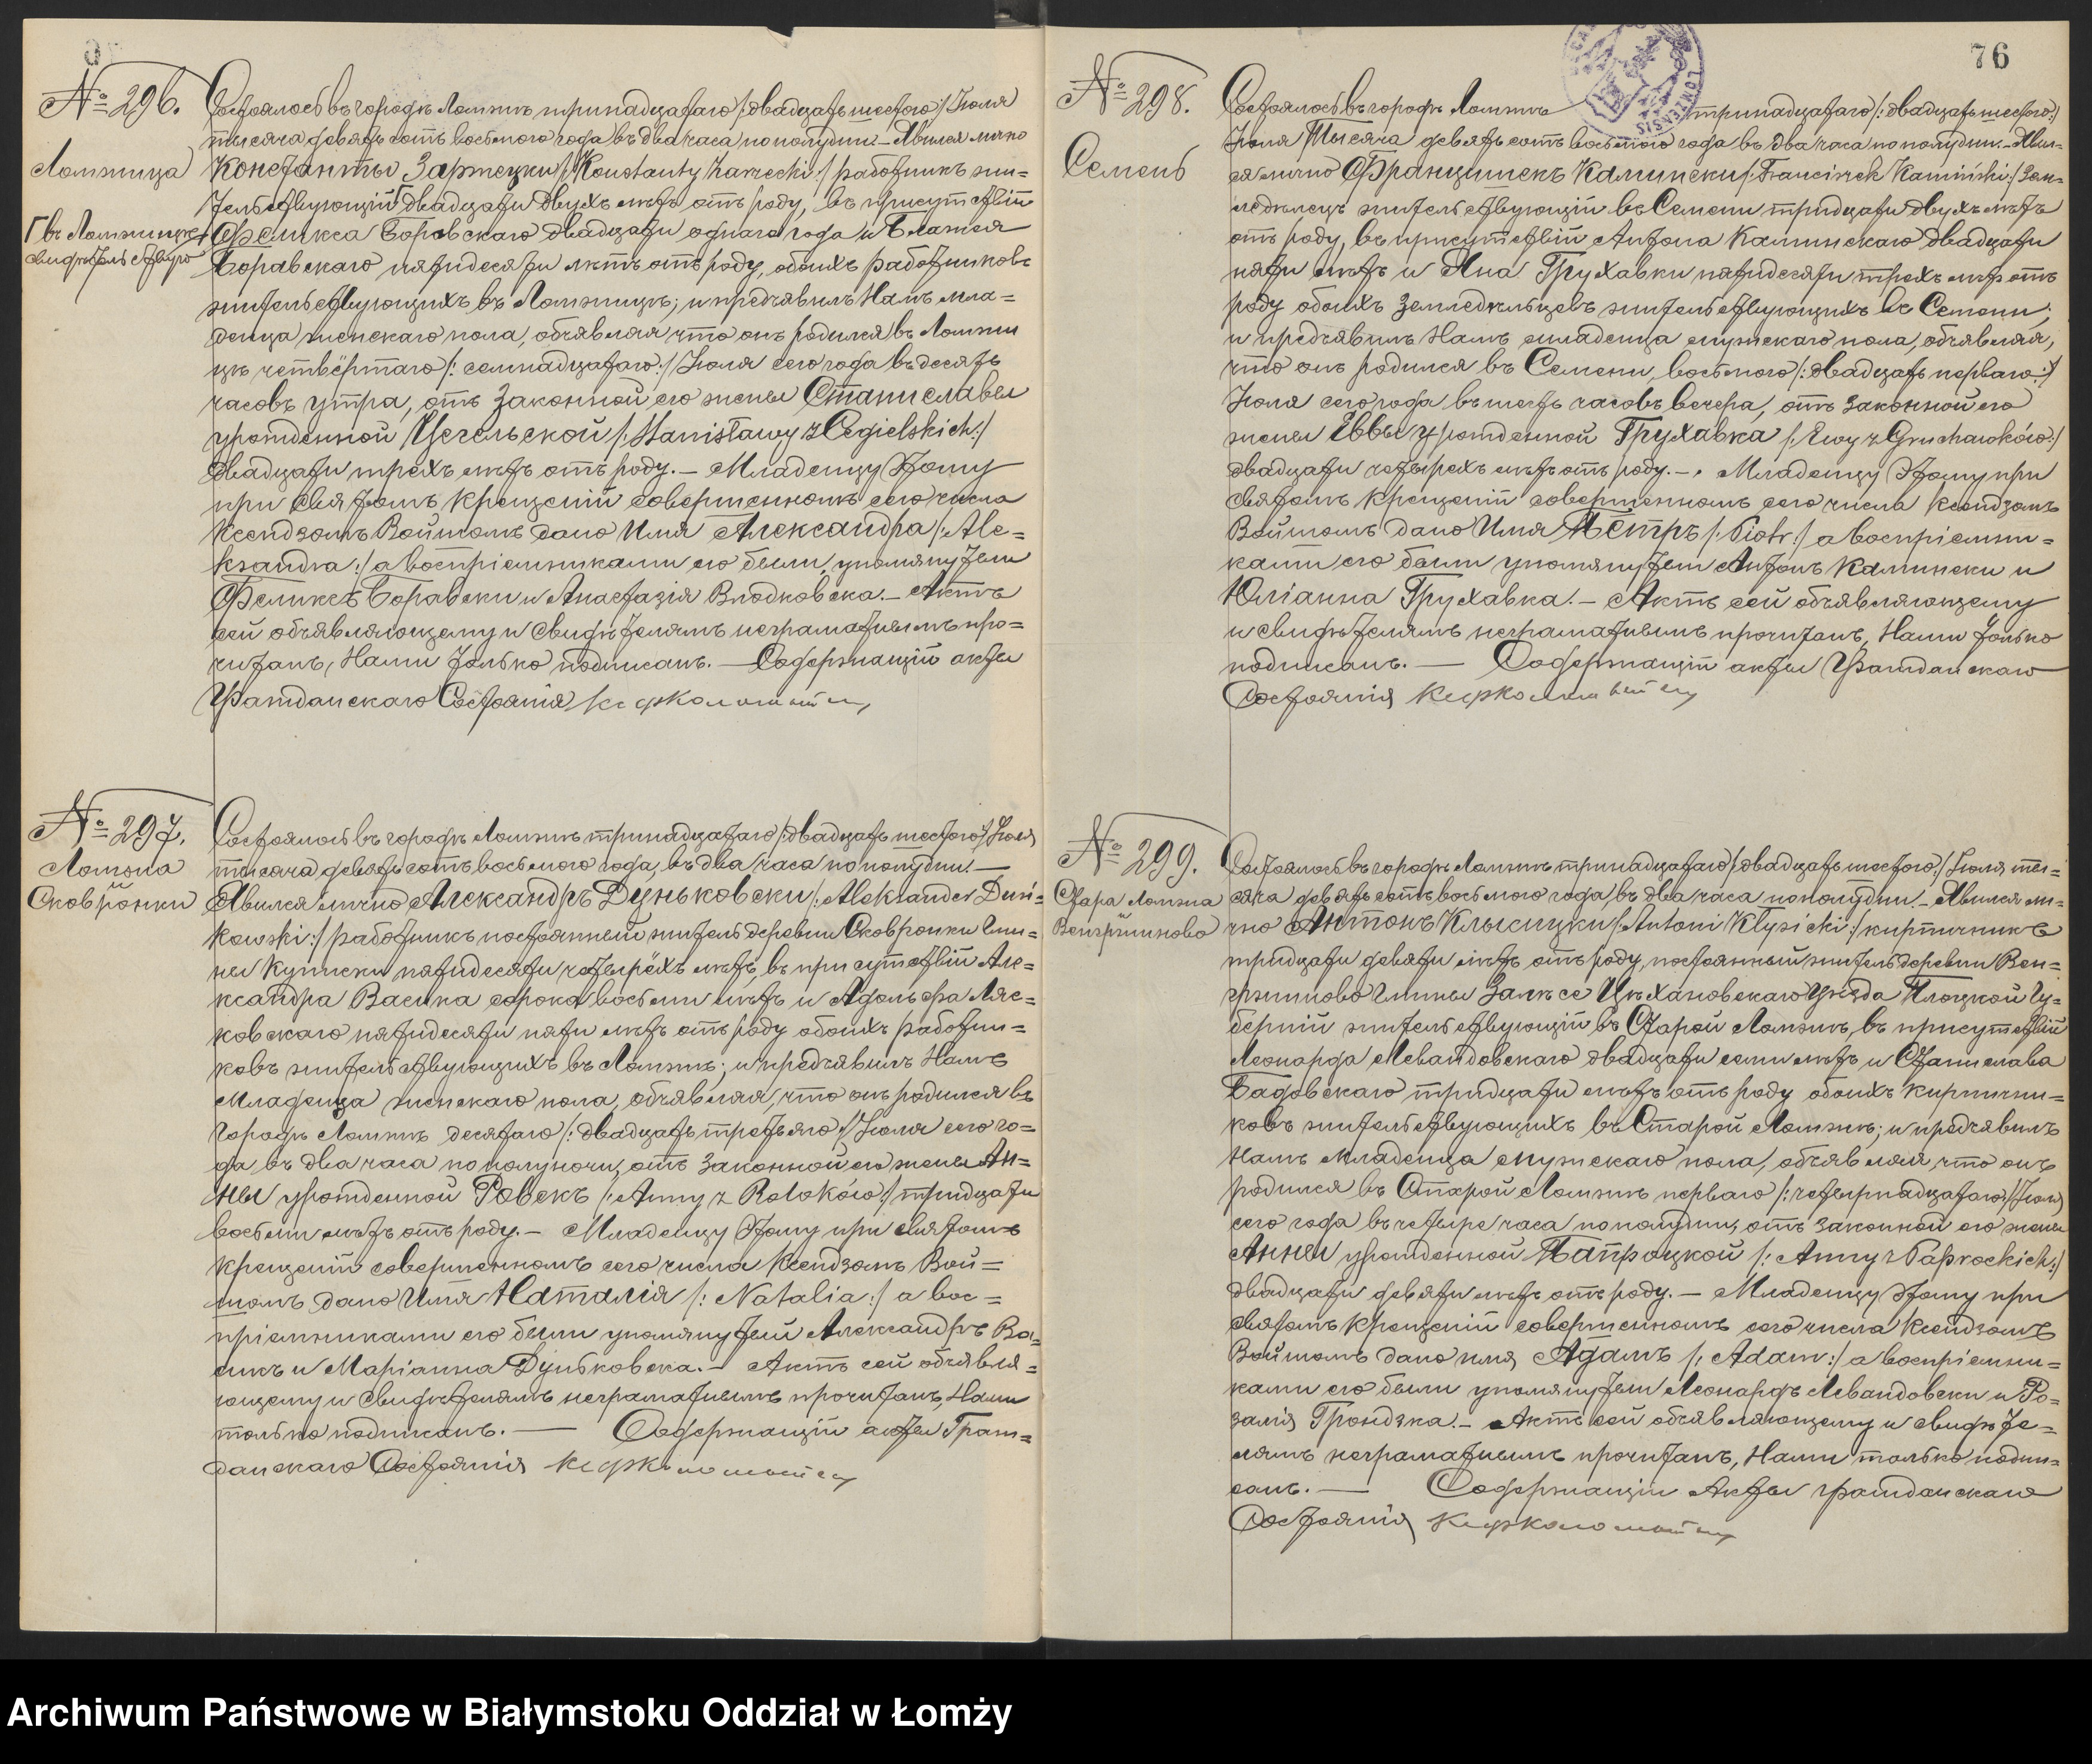 № 296.
Ломжица
Состоялось въ городѣ Ломжѣ тринадцатаго /: двадцать шестого :/ Іюля
тысяча девятьсотъ восьмого года въ два часа пополудни. – Явился лично
Константы Заржецки /: Konstanty Zarzecki :/ работникъ жи=
тельствующій двадцати двухъ лѣтъ отъ роду, въ присутствіи
въ Ломжицѣ
Феликса Боравскаго двадцати одного года и Блажея
Боравскаго пятидесяти лѣтъ отъ роду, обоихъ работниковъ
жительствующихъ въ Ломжицѣ; и предъявилъ Намъ мла=
денца женскаго пола, объявляя что онъ родился въ Ломжи
цѣ четвёртаго /: семнадцатаго :/ Іюля сего года въ десять
часовъ утра, отъ законной его жены Станиславы
урожденной Цегельской /: Stanisławy z Cegielskich :/
двадцати трехъ лѣтъ отъ роду. – Младенцу этому
при святомъ крещеніи совершенномъ сего числа
Ксендзомъ Войтомъ дано имя Александра /: Ale=
ksandra :/ а воспріемниками его были упомянутый
Феликсъ Боравски и Анастазія Влодковска. – Актъ
сей объявляющему и свидѣтелямъ неграмотнымъ про=
читанъ, Нами только подписанъ. — Содержащій акты
Гражданскаго Состоянія
№ 297.
Ломжа
Сковронки
Состоялось въ городѣ Ломжѣ тринадцатаго /: двадцать шестого :/ Іюля
тысяча девятьсотъ восьмого года, въ два часа пополудни. —
Явился лично Александръ Дуньковски /: Aleksander Duń=
kowski :/ работникъ постоянный житель деревни Сковронки Гми=
ны Куписки пятидесяти четырёхъ лѣтъ, въ присутствіи Але=
ксандра Васика сорока восьми лѣтъ и Адольфа Ляс=
ковскаго пятидесяти пяти лѣтъ отъ роду обоихъ работни=
ковъ жительствующихъ въ Ломжѣ; и предъявилъ Намъ
Младенца женскаго пола, объявляя, что онъ родился въ
городѣ Ломжѣ десятаго /: двадцать третьяго :/ Іюля сего го=
да въ два часа пополуночи, отъ законной его жены Ан=
ны урожденной Робекъ /: Anny z Robaków :/ тридцати
восьми лѣтъ отъ роду. – Младенцу этому при святомъ
крещеніи совершенномъ сего числа Ксендзомъ Вой=
томъ дано имя Наталія /: Natalia :/ а вос=
пріемниками его были упомянутый Александръ Ва=
сикъ и Маріанна Дуньковска. – Актъ сей объявля=
ющему и свидѣтелямъ неграмотнымъ прочитанъ, Нами
только подписанъ. — Содержащій акты Граж=
данскаго Состоянія
76
№ 298.
Семень
Состоялось въ городѣ Ломжѣ тринадцатаго /: двадцать шестого :/
Іюля Тысяча девятьсотъ восьмого года въ два часа пополудни. – Явил=
ся лично Францишекъ Камински /: Franciszek Kamiński :/ зем=
ледѣлецъ жительствующій въ Семени тридцати двухъ лѣтъ
отъ роду, въ присутствіи Антона Каминскаго двадцати
пяти лѣтъ и Яна Грухавки пятидесяти трехъ лѣтъ отъ
роду обоихъ земледѣльцевъ жительствующихъ въ Семени;
и предъявилъ Намъ младенца мужескаго пола, объявляя,
что онъ родился въ Семени, восьмого /: двадцать перваго :/
Іюля сего года въ шесть часовъ вечера, отъ законной его
жены Еввы урожденной Грухавка /: Ewy z Gruchawków :/
двадцати четырехъ лѣтъ отъ роду. – Младенцу этому при
святомъ крещеніи совершенномъ сего числа Ксендзомъ
Войтомъ дано имя Петръ /: Piotr :/ а воспріемни=
ками его были упомянутый Антонъ Камински и
Юліанна Грухавка. – Актъ сей объявляющему
и свидѣтелямъ неграмотнымъ прочитанъ, Нами только
подписанъ. — Содержащій акты Гражданскаго
Состоянія
№ 299.
Стара Ломжа
Венгржиново
Состоялось въ городѣ Ломжѣ тринадцатаго /: двадцать шестого :/ Іюля ты=
сяча девятьсотъ восьмого года, въ два часа пополудни. – Явился ли=
чно Антонъ Клысицки /: Antoni Kłysicki :/ кирпичникъ
тридцати девяти лѣтъ отъ роду, постоянный житель деревни Вен=
гржиново Гмины Залѣсе Цѣхановскаго Уѣзда Плоцкой Гу=
берніи жительствующій въ Старой Ломжѣ, въ присутствіи
Леонарда Левандовскаго двадцати семи лѣтъ и Станислава
Бадовскаго тридцати лѣтъ отъ роду обоихъ кирпични=
ковъ жительствующихъ въ Старой Ломжѣ; и предъявилъ
Намъ младенца мужескаго пола, объявляя, что онъ
родился въ Старой Ломжѣ перваго /: четырнадцатаго :/ Іюля
сего года въ четыре часа пополудни, отъ законной его жены
Анны урожденной Папроцкой /: Anny z Paprockich :/
двадцати девяти лѣтъ отъ роду. – Младенцу этому при
святомъ крещеніи совершенномъ сего числа Ксендзомъ
Войтомъ дано имя Адамъ /: Adam :/ а воспріемни=
ками его были упомянутый Леонардъ Левандовски и Ро=
залія Грондзка. – Актъ сей объявляющему и свидѣте=
лямъ неграмотнымъ прочитанъ, Нами только подпи=
санъ. — Содержащій Акты гражданскаго
Состоянія
Archiwum Państwowe w Białymstoku Oddział w Łomży